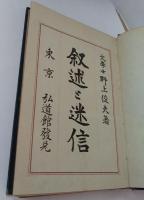 文学士 野上俊夫著
叙述と迷信
東京 弘道館發兌